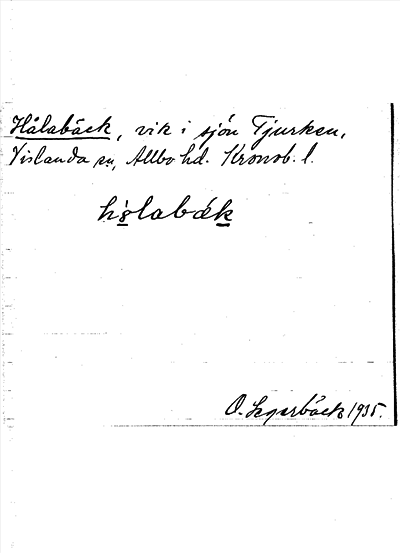 Hålabäck, vik i sjön Tjurken,
Vislanda sn, Allbo hd. Kronob. l.
hålabäk
O. 1935.